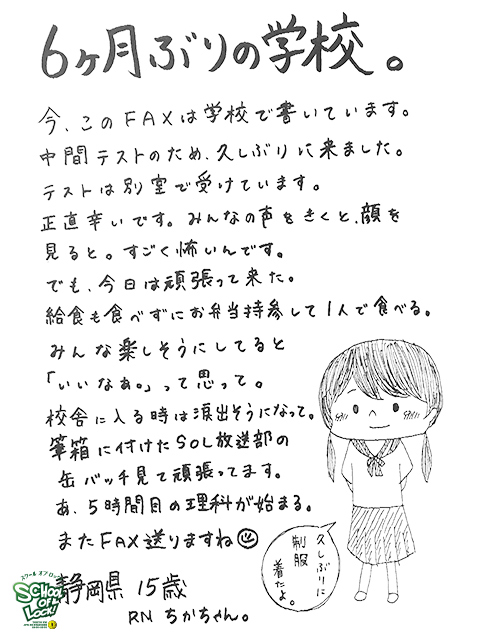 6ヶ月ぶりの学校。
今、このFAXは学校で書いています。
中間テストのため、久しぶりに来ました。
テストは別室で受けています。
正直辛いです。みんなの声をきくと、顔を
見ると。すごく怖いんです。
でも、今日は頑張って来た。
給食も食べずにお弁当持参して1人で食べる。
みんな楽しそうにしてると
「いいなぁ。」って思って。
校舎に入る時は涙出そうになって。
筆箱に付けたSOL放送部の
缶バッチ見て頑張ってます。
あ、5時間目の理科が始まる。
またFAX送りますね
久しぶりに
制服
着たよ。
静岡県 15歳
RN ちかちゃん。
スクール オブ ロック!
SCHOOL OF LOCK!